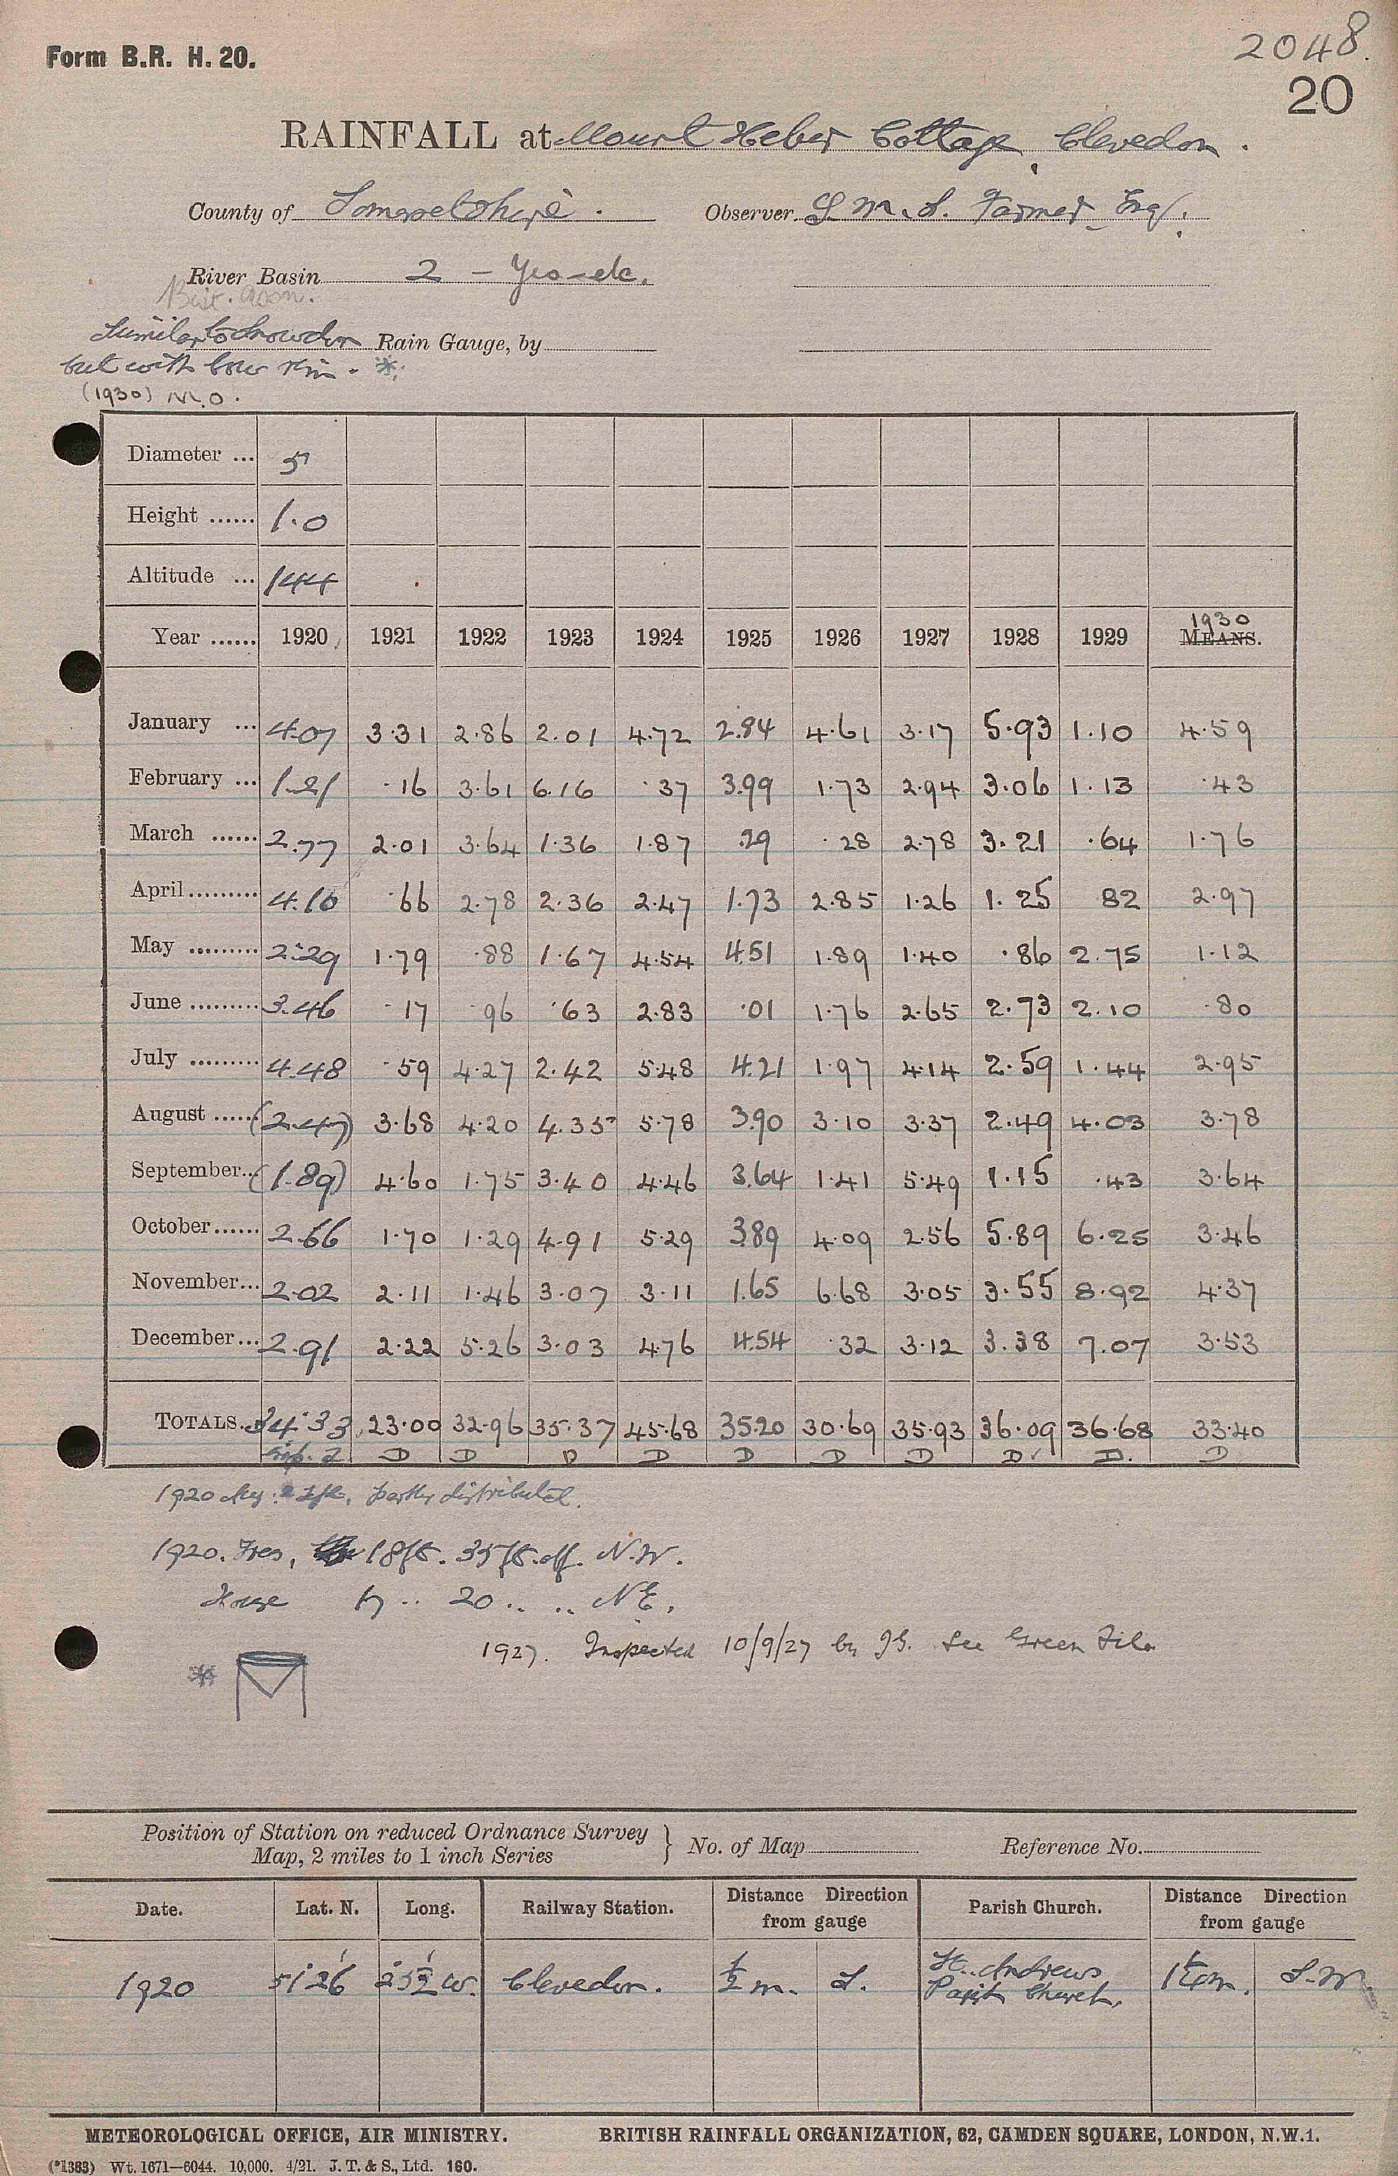 Form B.R. H. 20.
2048.
20
RAINFALL at Mount Heber Cottage, Clevedon.
County of Somersetshire. Observer. S. M. S. Farmer Esq.
River Basin 2 – Yeo – etc.
Similar to Snowdon Rain Gauge, by
but with low rim. *
(1930) M.O.
Diameter ... 5
Height ...... 1.0
Altitude ... 144
1930
Year ...... 1920 1921 1922 1923 1924 1925 1926 1927 1928 1929 MEANS.
January ... 4.07 3.31 2.86 2.01 4.72 2.84 4.61 3.17 5.93 1.10 4.59
February ... 1.21 .16 3.61 6.16 .37 3.99 1.73 2.94 3.06 1.13 .43
March ...... 2.77 2.01 3.64 1.36 1.87 .29 .28 2.78 3.21 .64 1.76
April......... 4.10 .66 2.78 2.36 2.47 1.73 2.85 1.26 1.25 82 2.97
May ......... 2.29 1.79 .88 1.67 4.54 4.51 1.89 1.40 .86 2.75 1.12
June ......... 3.46 .17 96 .63 2.83 .01 1.76 2.65 2.73 2.10 .80
July ......... 4.48 .59 4.27 2.42 5.48 4.21 1.97 4.14 2.59 1.44 2.95
August ...... (2.47) 3.68 4.20 4.35 5.78 3.90 3.10 3.37 2.49 4.03 3.78
September... (1.89) 4.60 1.75 3.40 4.46 3.64 1.41 5.49 1.15 .43 3.64
October...... 2.66 1.70 1.29 4.91 5.29 3.89 4.09 2.56 5.89 6.25 3.46
November... 2.02 2.11 1.46 3.07 3.11 1.65 6.68 3.05 3.55 8.92 4.37
December... 2.91 2.22 5.26 3.03 4.76 4.54 .32 3.12 3.38 7.07 3.53
TOTALS... 34.33 23.00 32.96 35.37 45.68 35.20 30.69 35.93 36.09 36.68 33.40
D D D D D D D D D. D
1920 Aug. partly distributed.
1920. Trees, 18 ft. 35 ft. off. N.W.
House 17 .. 20 .. .. N.E.
1927. Inspected 10/9/27 by See Green File
*
Position of Station on reduced Ordnance Survey
Map, 2 miles to 1 inch Series } No. of Map Reference No.
Date. Lat. N. Long. Railway Station. Distance Direction from gauge Parish Church. Distance Direction from gauge
1920 51°26' 2°51½' W. Clevedon. ½ m. S. St. Andrews Parish Church, 1¼ m. S.W
METEOROLOGICAL OFFICE, AIR MINISTRY. BRITISH RAINFALL ORGANIZATION, 62, CAMDEN SQUARE, LONDON, N.W.1.
(*1383) Wt. 1671—6044. 10,000. 4/21. J. T. & S., Ltd. 160.